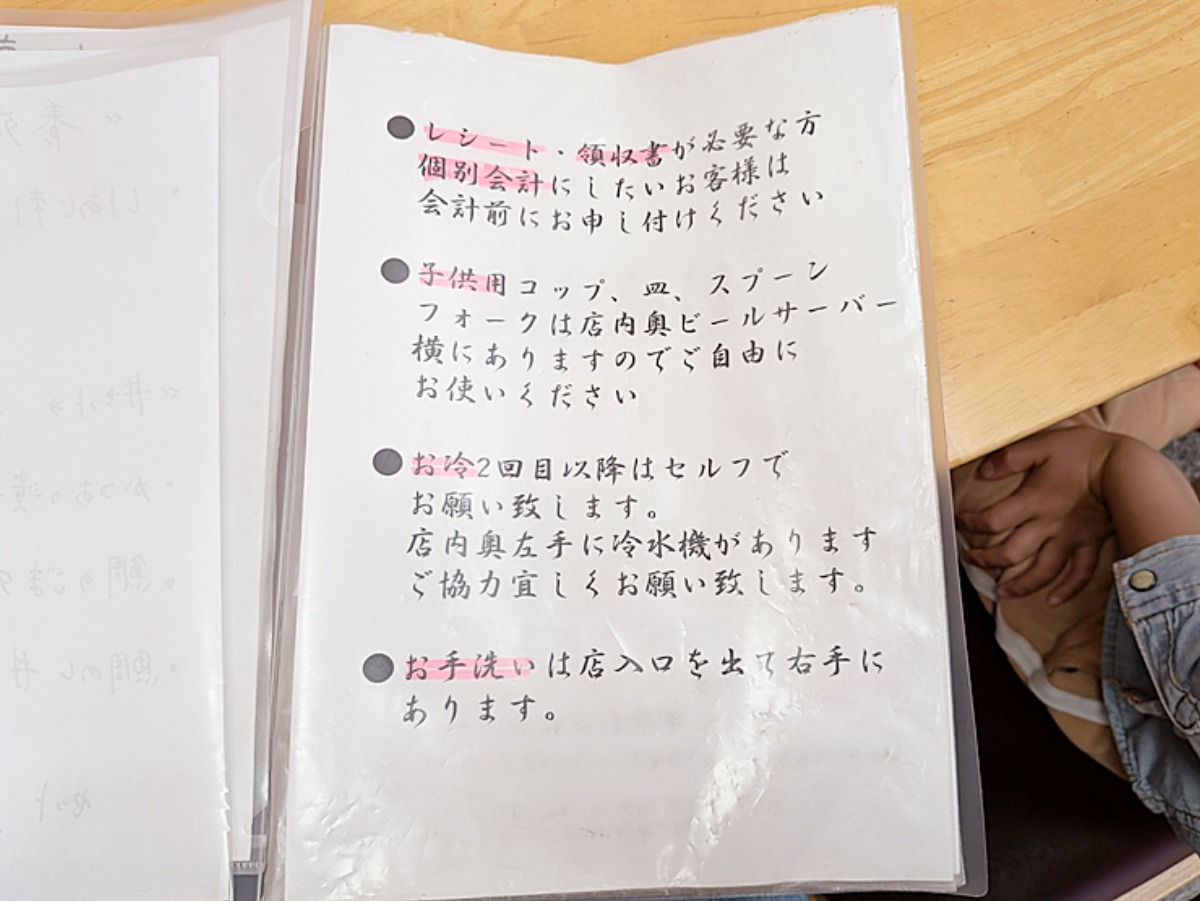 ●レシート・領収書が必要な方
個別会計にしたいお客様は
会計前にお申し付けください
●子供用コップ、皿、スプーン
フォークは店内奥ビールサーバー
横にありますのでご自由に
お使いください
●お冷2回目以降はセルフで
お願い致します。
店内奥左手に冷水機があります
ご協力宜しくお願い致します。
●お手洗いは店入口を出て右手に
あります。